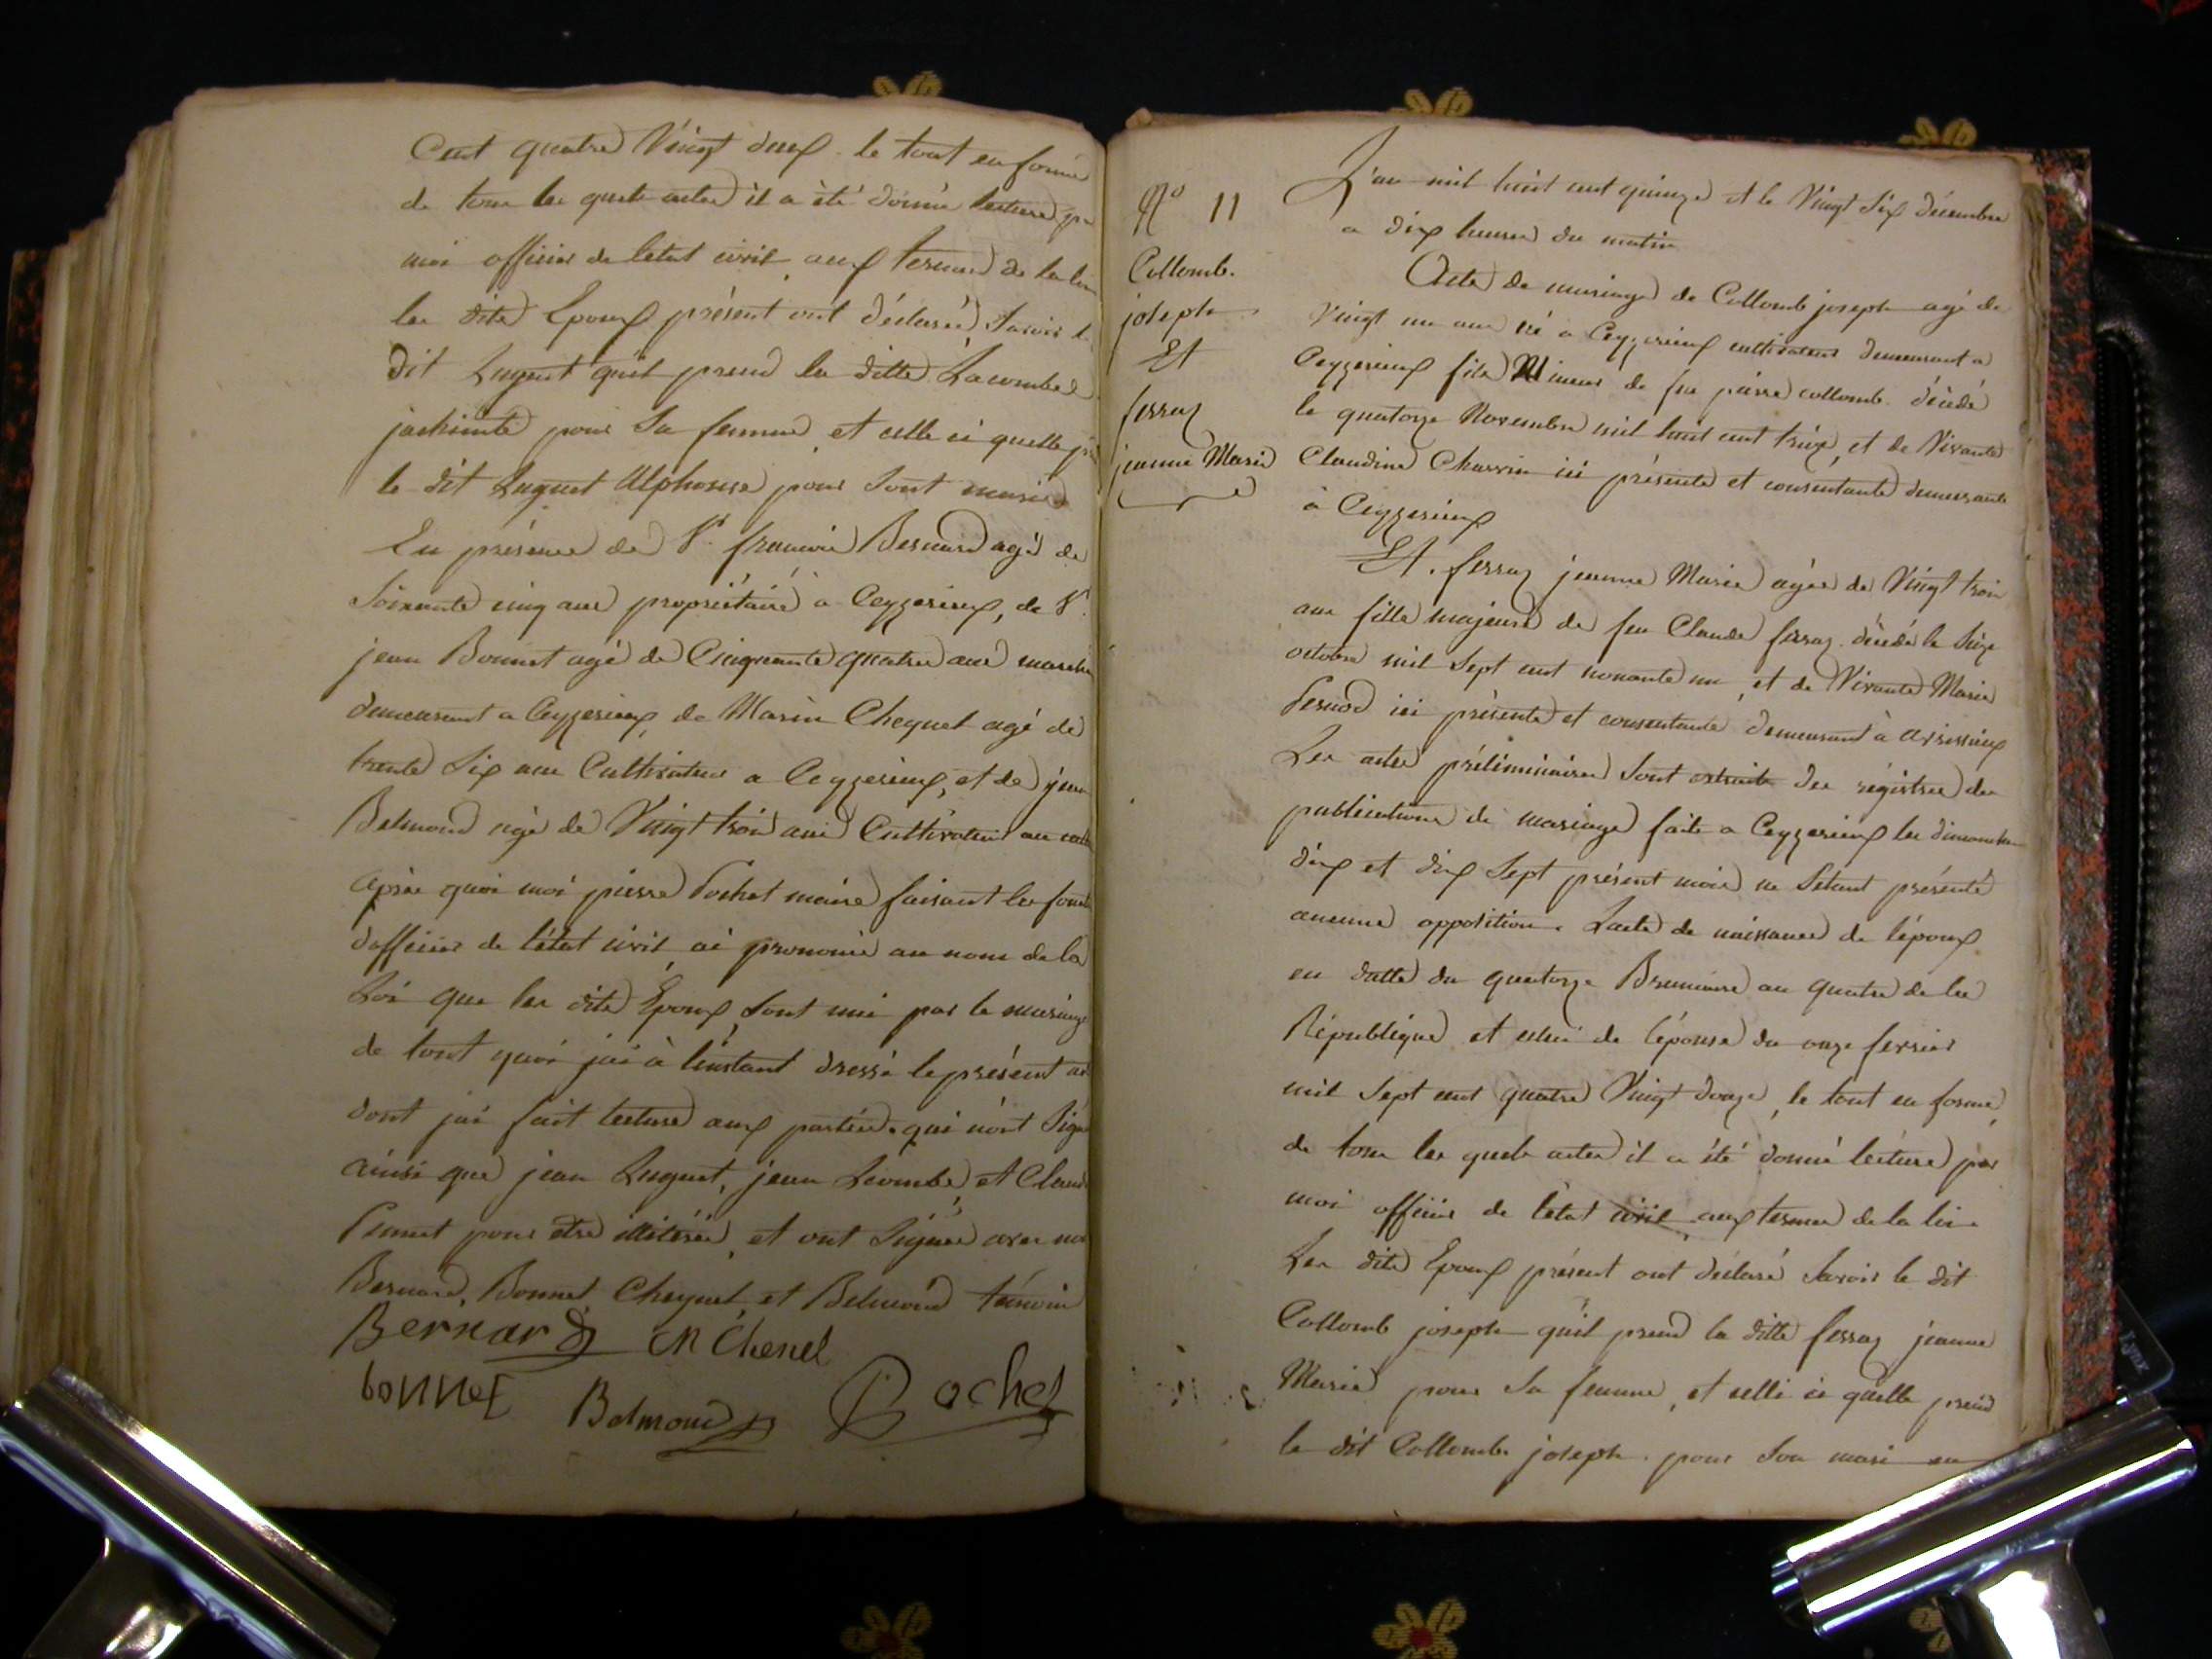 Cent quatre Vingt deux. le tout en forme
de tous les quels actes il a été donné lecture par
moi officier de letat civil, aux termes de la loi
les dits Epoux présent ont déclarés, Savoir le
dit Luguet quil prend la ditte Lacombe
jachinte pour Sa femme, et celle ci quelle pr
le dit Luguet Alphonse pour Sont maris
En présence de Sr. francois Bernard agé de
Soixante cinq ans propriétaire a Ceyzerieux, de Sr.
jean Bonnet agé de Cinquante quatre ans march
demeurant a Ceyzerieux, de Marin Chequet agé de
trente Six ans Cultivateur a Ceyzerieux, et de jean
Belmond agé de Vingt trois ans Cultivateur au
après quoi moi pierre Pochet maire faisant les fonct
dofficier de létat civil, ai prononcé au nom de la
Loi que les dits Epoux, Sont uni par le mariage
de tout quoi jai à linstant dressé le présent ac
dont jai fait lecture aux parties. qui n'ont Signé
ainsi que jean Luguet, jean Lacombe, et Claud
Pernet pour etre illitérés, et ont Signés avec moi
Bernard, Bonnet Chequet, et Belmond témoins
Bernard M Chenel
bonnet Belmond Pochet
No 11
Collomb.
joseph
Et
ferraz
jeanne Marie
L'an mil huit cent quinze et le Vingt Six décembre
a dix heures du matin
Acte de mariage de Collomb joseph agé de
Vingt un ans né a Ceyzerieux cultivateur demeurant a
Ceyzerieux fils Mineur de feu pierre collomb. décédé
le quatorze Novembre mil huit cent treize, et de Vivante
Claudine Charvin ici présente et consentante demeurante
à Ceyzerieux
Et. ferraz jeanne Marie agée de Vingt trois
ans fille majeure de feu Claude ferraz. décédé le Seize
octobre mil Sept cent nonante un, et de Vivante Marie
Pernod ici présente et consentante demeurant à avressieux
Les actes préliminaires Sont extraits des régistres des
publications de mariage faite a Ceyzerieux les dimanches
dix et dix Sept présent mois ne Setant présenté
aucune opposition. Lacte de naissance de lépoux
en datte du quatorze Brumaire an quatre de la
République et celui de lépouse du onze fevrier
mil Sept cent quatre Vingt douze, le tout en forme,
de tous les quels actes il a été donné lecture par
moi officier de létat civil, aux termes de la loi.
Les dits Epoux présent ont déclaré Savoir le dit
Collomb joseph quil prend la ditte ferraz jeanne
Marie pour Sa femme, et celle ci quelle prend
le dit Collomb joseph. pour Son mari en